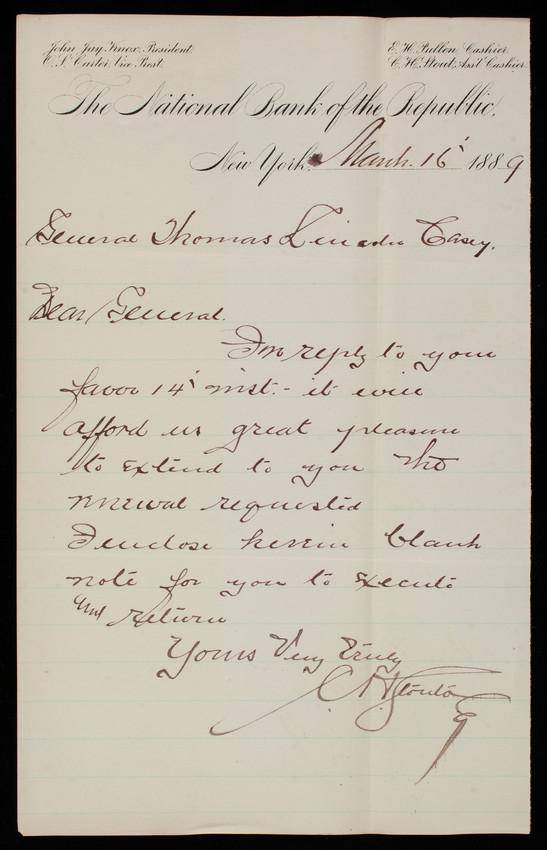 John Jay Knox, President
O. S. Carter, Vice Prest.
E. H. Pullen Cashier.
C. H. Stout, Ass't Cashier.
The National Bank of the Republic,
New York. March 16' 1889
General Thomas Lincoln Casey.
Dear General.
In reply to your
favor 14' inst. - it will
afford us great pleasure
to extend to you the
renewal requested
I enclose herein blank
note for you to execute
and return
Yours Very Truly
C H Stout